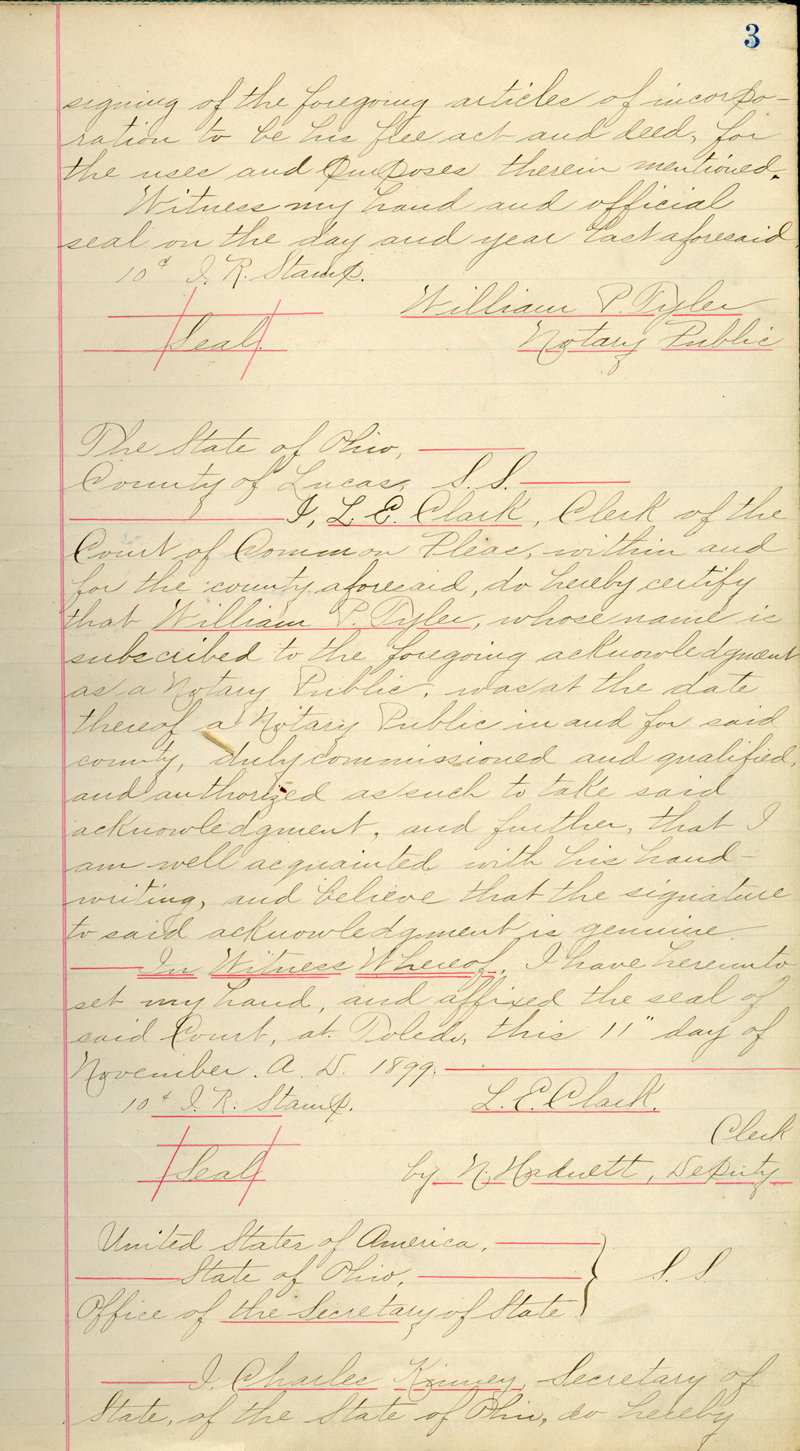 3
signing of the foregoing articles of incorpo-
ration to be his free act and deed, for
the uses and purposes therein mentioned.
Witness my hand and official
seal on the day and year last aforesaid
10¢ I. R. Stamp.
William P. Tyler
Seal.
Notary Public
The State of Ohio,
County of Lucas, S.S.
I, L. E. Clark, Clerk of the
Court of Common Pleas, within and
for the county aforesaid, do hereby certify
that William P. Tyler, whose name is
subscribed to the foregoing acknowledgment
as a Notary Public, was at the date
thereof a Notary Public in and for said
county, duly commissioned and qualified,
and authorized as such to take said
acknowledgment, and further, that I
am well acquainted with his hand-
writing, and believe that the signature
to said acknowledgment is genuine.
In Witness Whereof, I have hereunto
set my hand, and affixed the seal of
said Court, at Toledo, this 11" day of
November. A. D. 1899.
10¢ I. R. Stamp.
L. E. Clark.
Clerk
Seal
by N. Hadnett, Deputy
United States of America,
State of Ohio, S. S.
Office of the Secretary of State
I, Charles Kinney, Secretary of
State, of the State of Ohio, do hereby